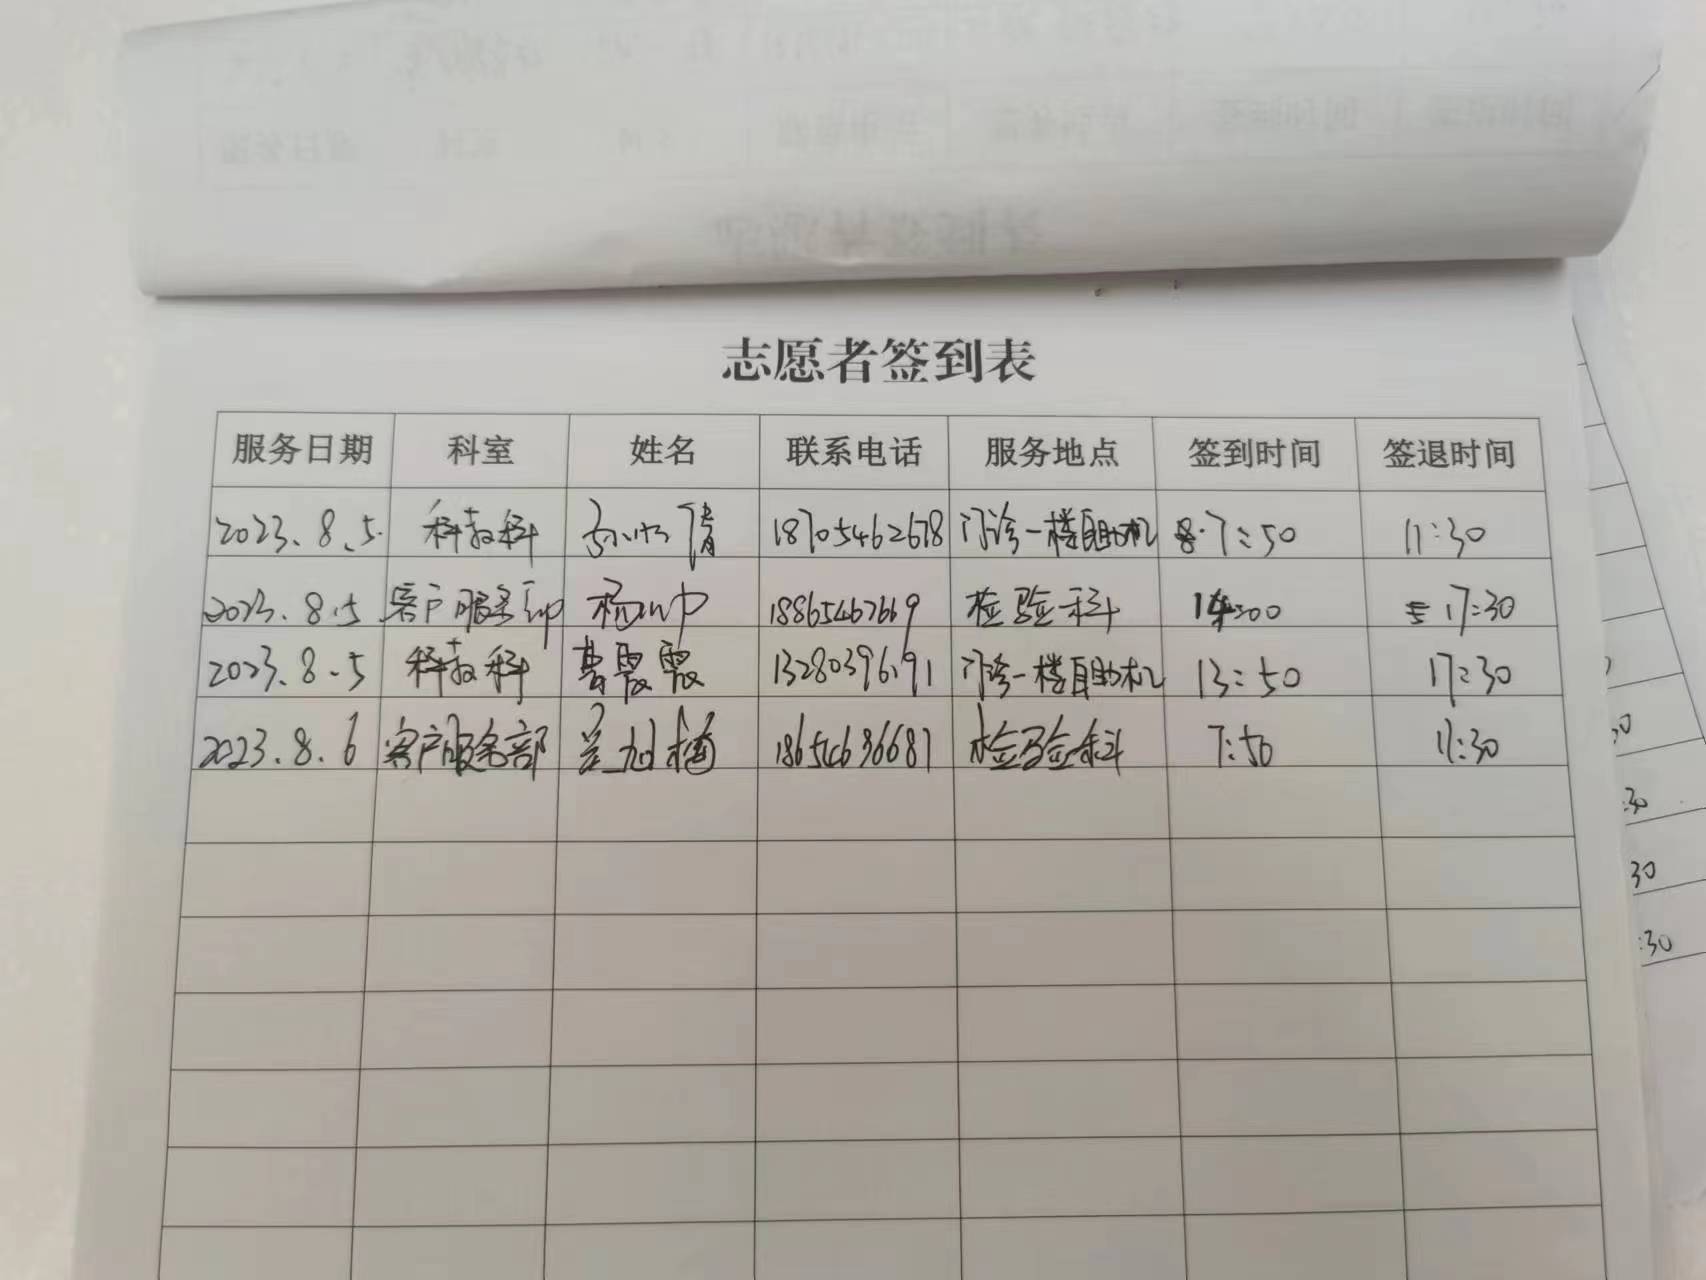 志愿者签到表
服务日期 科室 姓名 联系电话 服务地点 签到时间 签退时间
2023.8.5. 科教科 18705462678 门诊一楼自助机 7:50 11:30
2023.8.5 客户服务部 杨 18865467669 检验科 14:00 17:30
2023.8.5 科教科 霞霞 13280396191 门诊一楼自助机 13:50 17:30
2023.8.6 客户服务部 18654636687 检验科 7:50 11:30
30
:30
30
:30